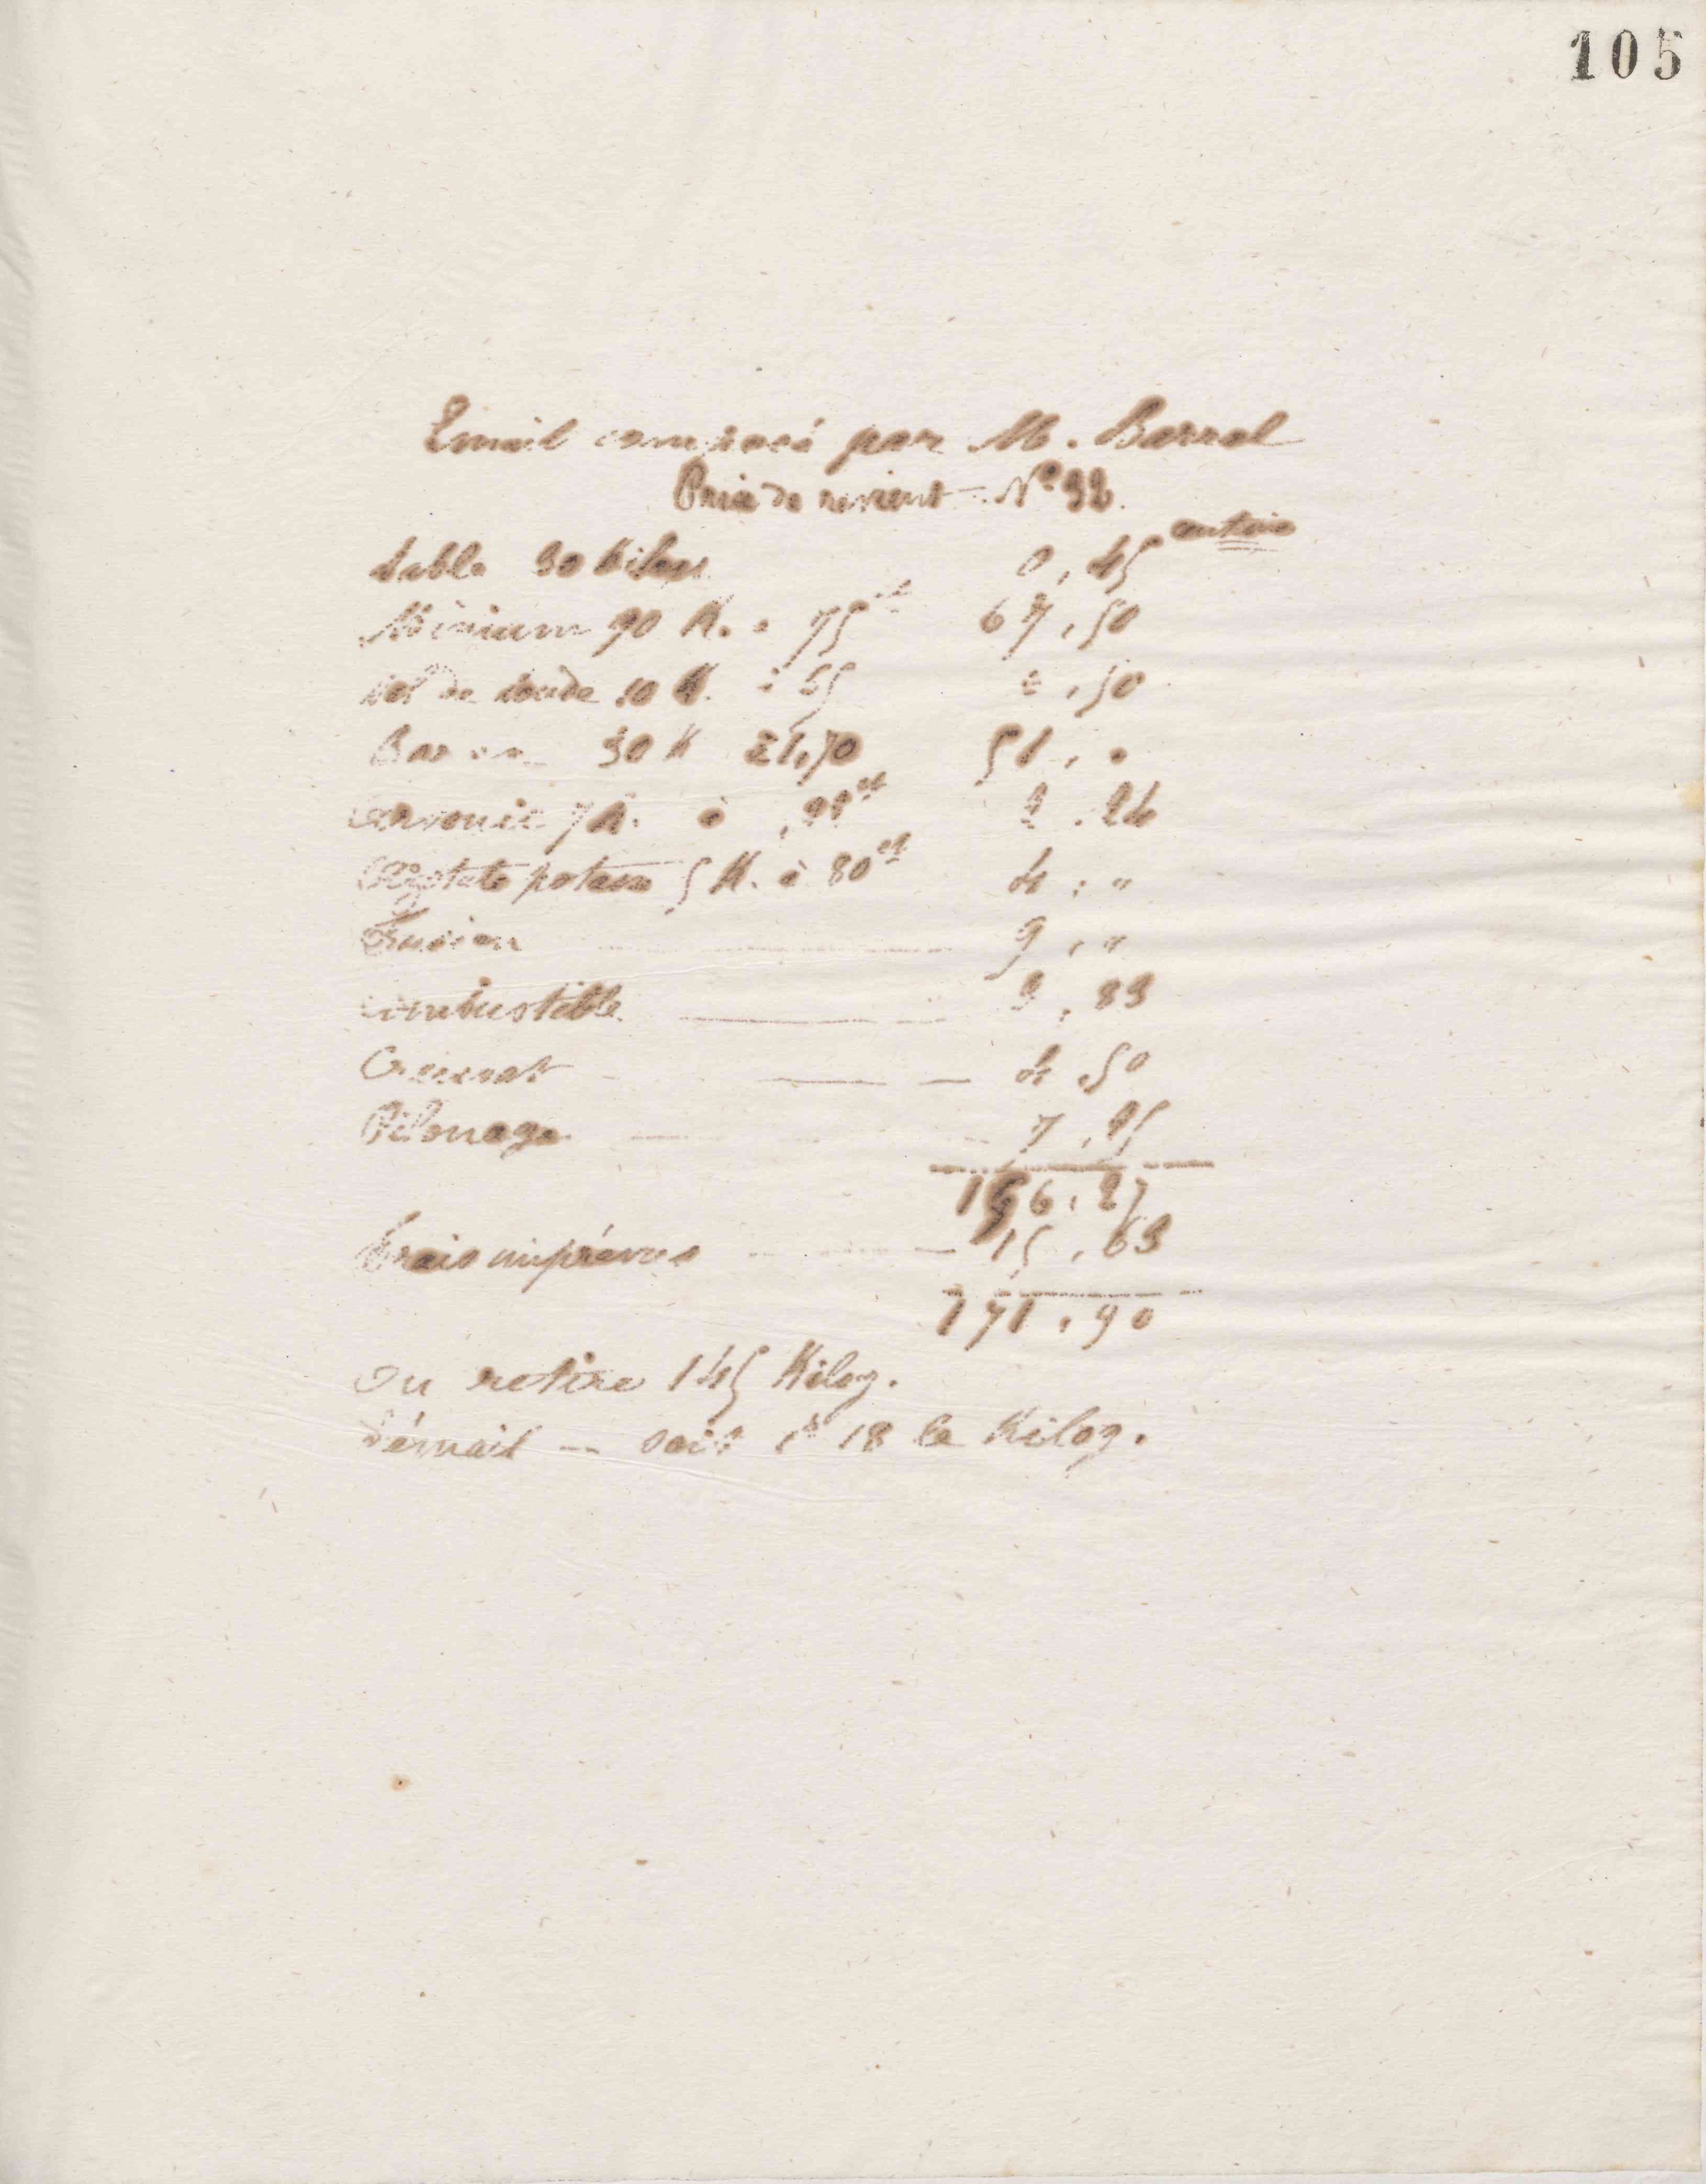 105
Email composé par M. Barral
Prix de revient - N° 32.
Sable 30 Kilog. 0,45 centimes
Minium 90 K. à 75ct 67,50
sel de soude 10 K. à 65 6,50
Borax 30 K à 1,70 51, "
Arsenic 7 K. à ,32ct 2,24
Azotate potasse 5 K. à 80ct 4, "
Fusion 9, "
combustible 3,83
Creuset 4,50
Pilonage 7,25
156,27
Frais imprévus 15,63
171,90
on retire 145 Kilog.
d'émail — soit 1f 18 le Kilog.